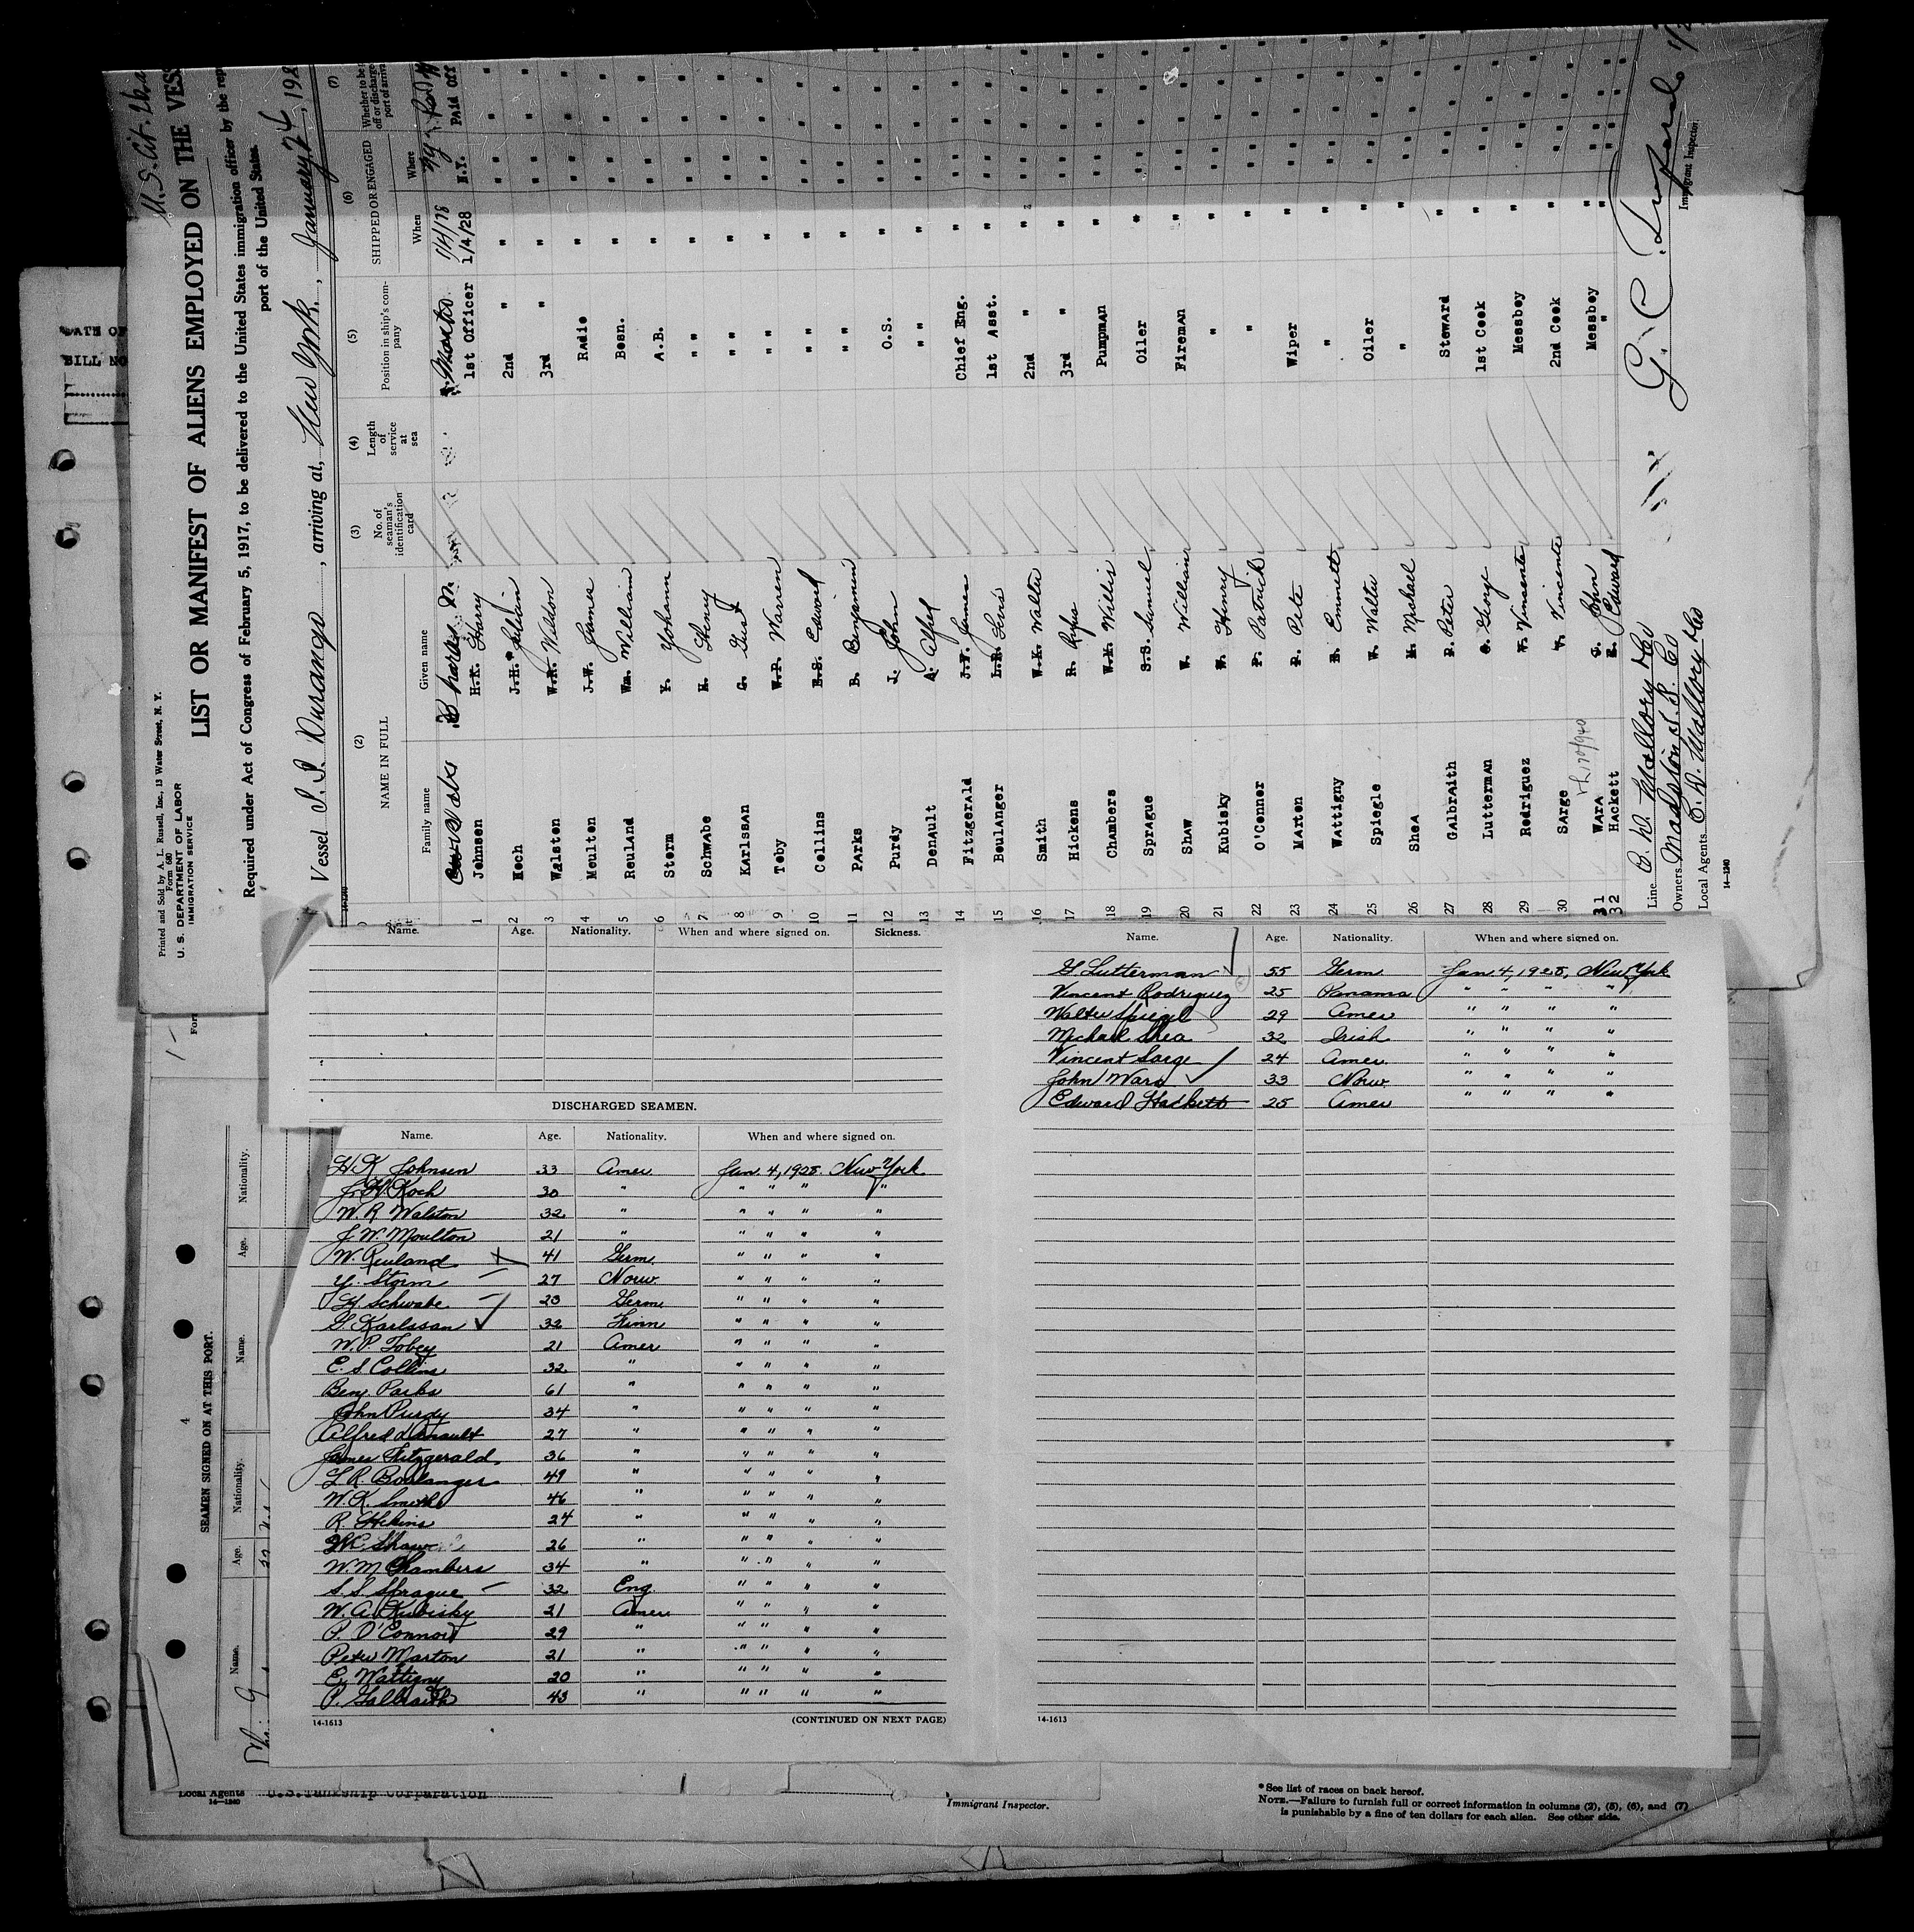 U. S. Cit.
Printed and Sold by A. L. Russell, Inc., 13 Water Street, N. Y.
Form 680
U. S. DEPARTMENT OF LABOR
IMMIGRATION SERVICE
LIST OR MANIFEST OF ALIENS EMPLOYED ON THE VESS
Required under Act of Congress of February 5, 1917, to be delivered to the United States immigration officer by the rep
port of the United States.
Vessel S. S. Durango, arriving at, New York., January 24, 192
14-1240
(2) (3) (4) (5) (6) (7)
NAME IN FULL No. of seaman's identification card Length of service at sea Position in ship's company SHIPPED OR ENGAGED Whether to be off or discharge port of arriva
Family name Given name When Where
Charles M. Master 1/4/28 N.Y. Paid off
1 Johnsen H.K. Harry 1st Officer 1/4/28 N.Y. Paid Off
2 Koch J.H. 2nd " " "
3 Walsten W.R. Weldon 3rd " " "
4 Moulten J.W. James Radio " "
5 Reuland Wm. William Bosn. " "
6 Storm Y. Yohann A.B. " "
7 Schwabe H. Henry " " " "
8 Karlssan G. Gust " " " "
9 Toby W.P. Warren " " " "
10 Collins E.S. Edward " " " "
11 Parks B. Benjamin " " " "
12 Purdy J. John O.S. " "
13 Denault A. Alfred " " " "
14 Fitzgerald J.F. James Chief Eng. " "
15 Boulanger L.R. Louis 1st Asst. " "
16 Smith W.K. Walter 2nd " " "
17 Hickens R. Rufus 3rd " " "
18 Chambers W.M. Willis Pumpman " "
19 Sprague S.S. Samuel Oiler " "
20 Shaw W. William Fireman " "
21 Kubisky W. Henry " " "
22 O'Conner P. Patrick " " "
23 Marten P. Pete Wiper " "
24 Wattigny E. Emmett " " "
25 Spiegle W. Walter Oiler " "
26 Shea M. Michael " " "
27 Galbraith P. Peter Steward " "
28 Lutterman G. George 1st Cook " "
29 Rodriguez V. Vinsente Messboy " "
30 Sarge V. Vincente 2nd Cook " "
31 Wara J. John Messboy " "
32 Hackett E. Edward " " "
Line C. D. Mallory & Co
Owners Madison S.S. Co
Local Agents C. D. Mallory & Co
14-1240
Immigrant Inspector.
DATE OF
BILL NO
Name. Age. Nationality. When and where signed on. Sickness.
DISCHARGED SEAMEN.
Name. Age. Nationality. When and where signed on.
H K Johnsen 33 Amer Jan. 4, 1928. New York
J. H. Koch 30 " " " " "
W. R Walston 32 " " " " "
J. W. Moulton 21 " " " " "
W. Reuland 41 Germ. " " " "
Y. Storm 27 Norw. " " " "
H. Schwabe 23 Germ " " " "
G. Karlssan 32 Finn " " " "
W. P. Tobey 21 Amer " " " "
E. S. Collins 32 " " " " "
Benj. Parks 61 " " " " "
John Purdy 34 " " " " "
Alfred Denault 27 " " " " "
James Fitzgerald. 36 " " " " "
L. R. Boulanger 49 " " " " "
W. K. Smith 46 " " " " "
R. Hickins 24 " " " " "
Wm. Shaw 26 " " " " "
W. M Chambers 34 " " " " "
S. S. Sprague 32 Eng. " " " "
W. A. Kubisky 21 Amer " " " "
P. O'Connor 29 " " " " "
Peter Marton 21 " " " " "
E. Wattigny 20 " " " " "
P. Galbraith 43 " " " " "
14-1613 (CONTINUED ON NEXT PAGE)
Name. Age. Nationality. When and where signed on.
G Lutterman 55 Germ Jan. 4, 1928, New York
Vincent Rodriguez 25 Panama " " " "
Walter Spiegel 29 Amer " " " "
Michael Shea 32 Irish " " " "
Vincent Sarge 24 Amer. " " " "
John Wara 33 Norw. " " " "
Edward Hackett 25 Amer " " " "
14-1613
4
SEAMEN SIGNED ON AT THIS PORT.
Name. Age. Nationality. Name. Age. Nationality.
Local Agents U.S. Tankship Corporation
14-1240
Immigrant Inspector.
*See list of races on back hereof.
NOTE.—Failure to furnish full or correct information in columns (2), (5), (6), and (7)
is punishable by a fine of ten dollars for each alien. See other side.